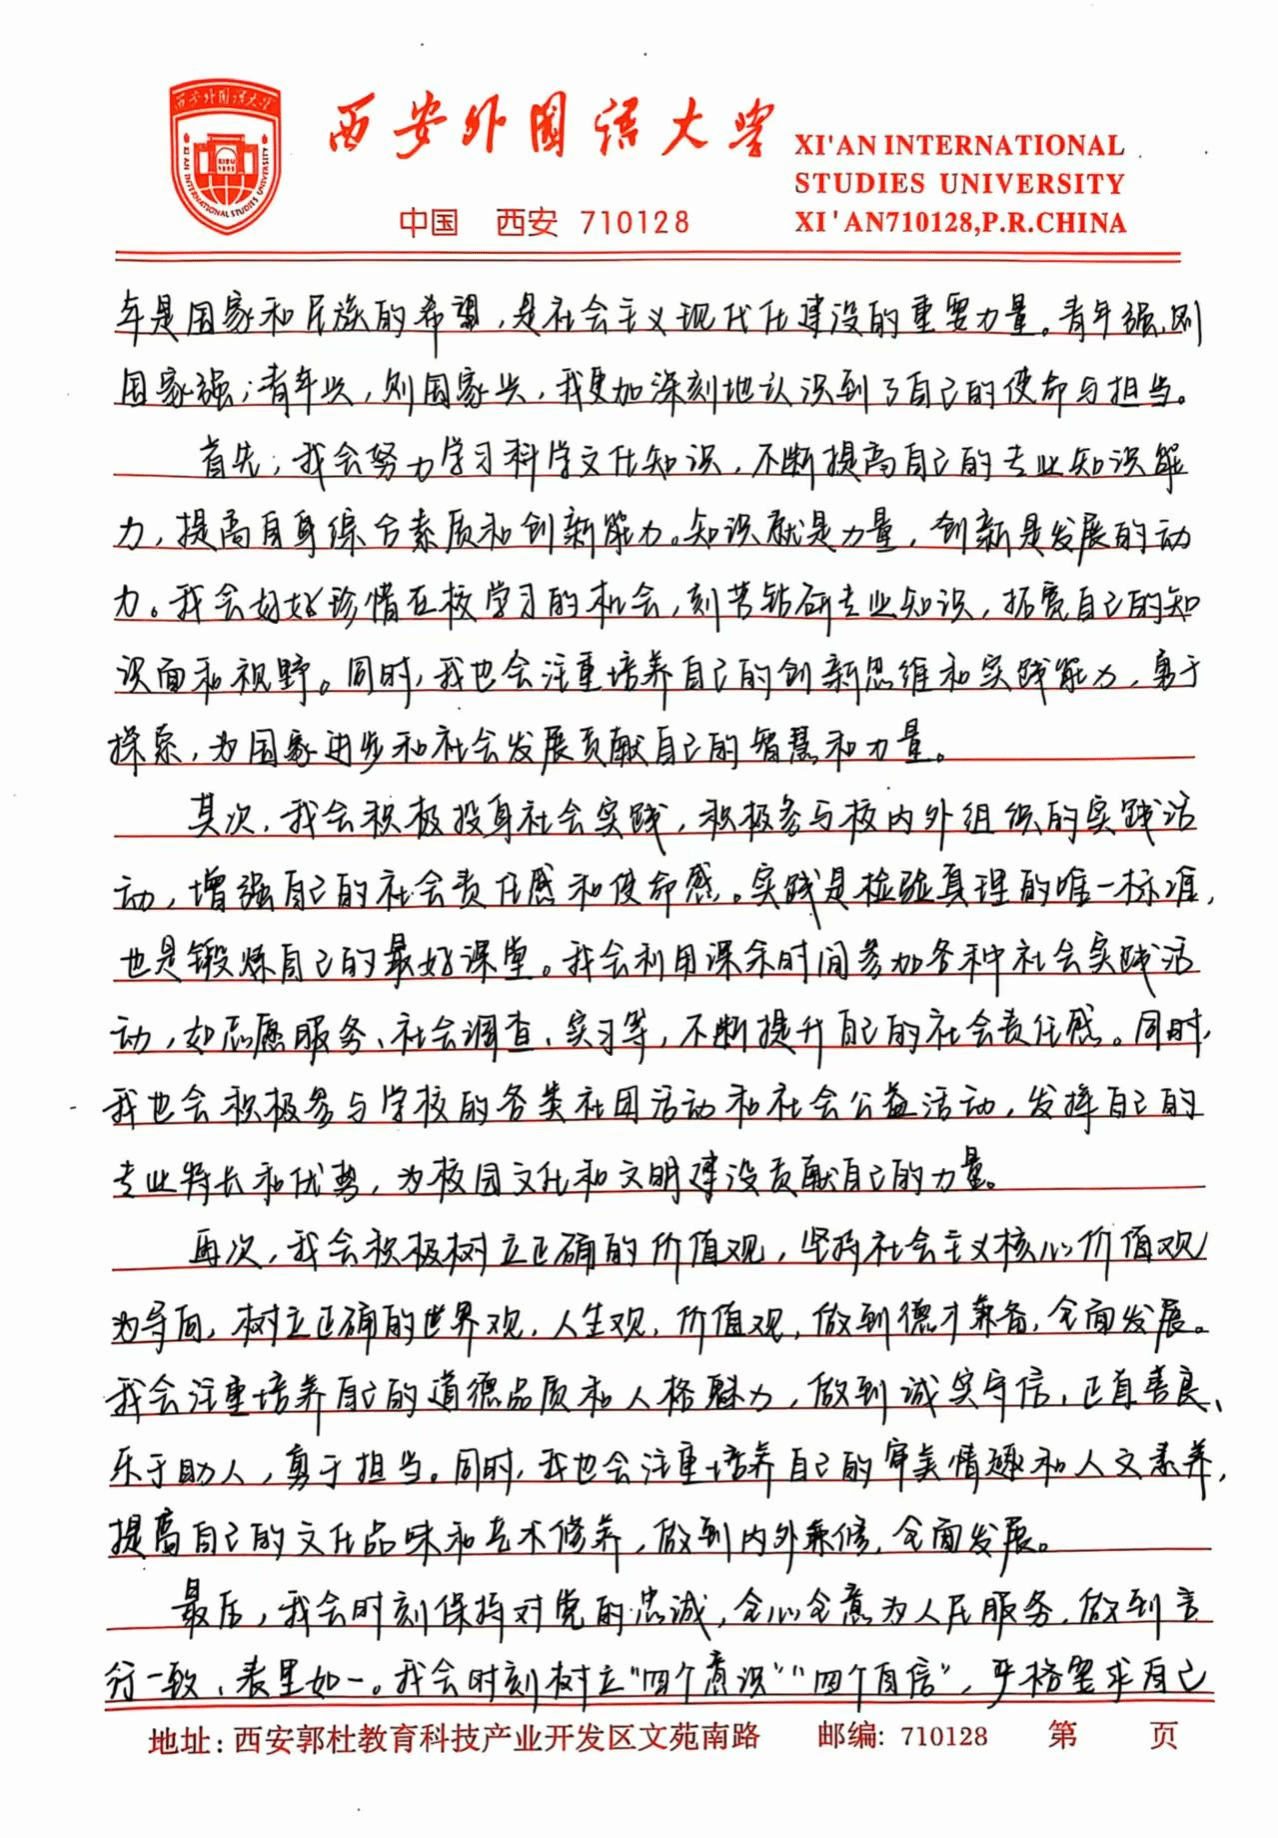 西安外国语大学
XI'AN INTERNATIONAL STUDIES UNIVERSITY
西安外国语大学
XI'AN INTERNATIONAL
STUDIES UNIVERSITY
中国 西安 710128
XI'AN710128,P.R.CHINA
年是国家和民族的希望,是社会主义现代化建设的重要力量。青年强,则
国家强;青年兴,则国家兴,我更加深刻地认识到了自己的使命与担当。
首先,我会努力学习科学文化知识,不断提高自己的专业知识能
力,提高自身综合素质和创新能力。知识就是力量,创新是发展的动
力。我会好好珍惜在校学习的机会,刻苦钻研专业知识,拓宽自己的知
识面和视野。同时,我也会注重培养自己的创新思维和实践能力,勇于
探索,为国家进步和社会发展贡献自己的智慧和力量。
其次,我会积极投身社会实践,积极参与校内外组织的实践活
动,增强自己的社会责任感和使命感。实践是检验真理的唯一标准,
也是锻炼自己的最好课堂。我会利用课余时间参加各种社会实践活
动,如志愿服务、社会调查、实习等,不断提升自己的社会责任感。同时,
我也会积极参与学校的各类社团活动和社会公益活动,发挥自己的
专业特长和优势,为校园文化和文明建设贡献自己的力量。
再次,我会积极树立正确的价值观,坚持社会主义核心价值观
为导向,树立正确的世界观,人生观,价值观,做到德才兼备,全面发展。
我会注重培养自己的道德品质和人格魅力,做到诚实守信,正直善良、
乐于助人,勇于担当。同时,我也会注重培养自己的审美情趣和人文素养,
提高自己的文化品味和艺术修养,做到内外兼修,全面发展。
最后,我会时刻保持对党的忠诚,全心全意为人民服务,做到言
行一致、表里如一。我会时刻树立“四个意识”“四个自信”,严格要求自己
地址:西安郭杜教育科技产业开发区文苑南路 邮编: 710128 第 页